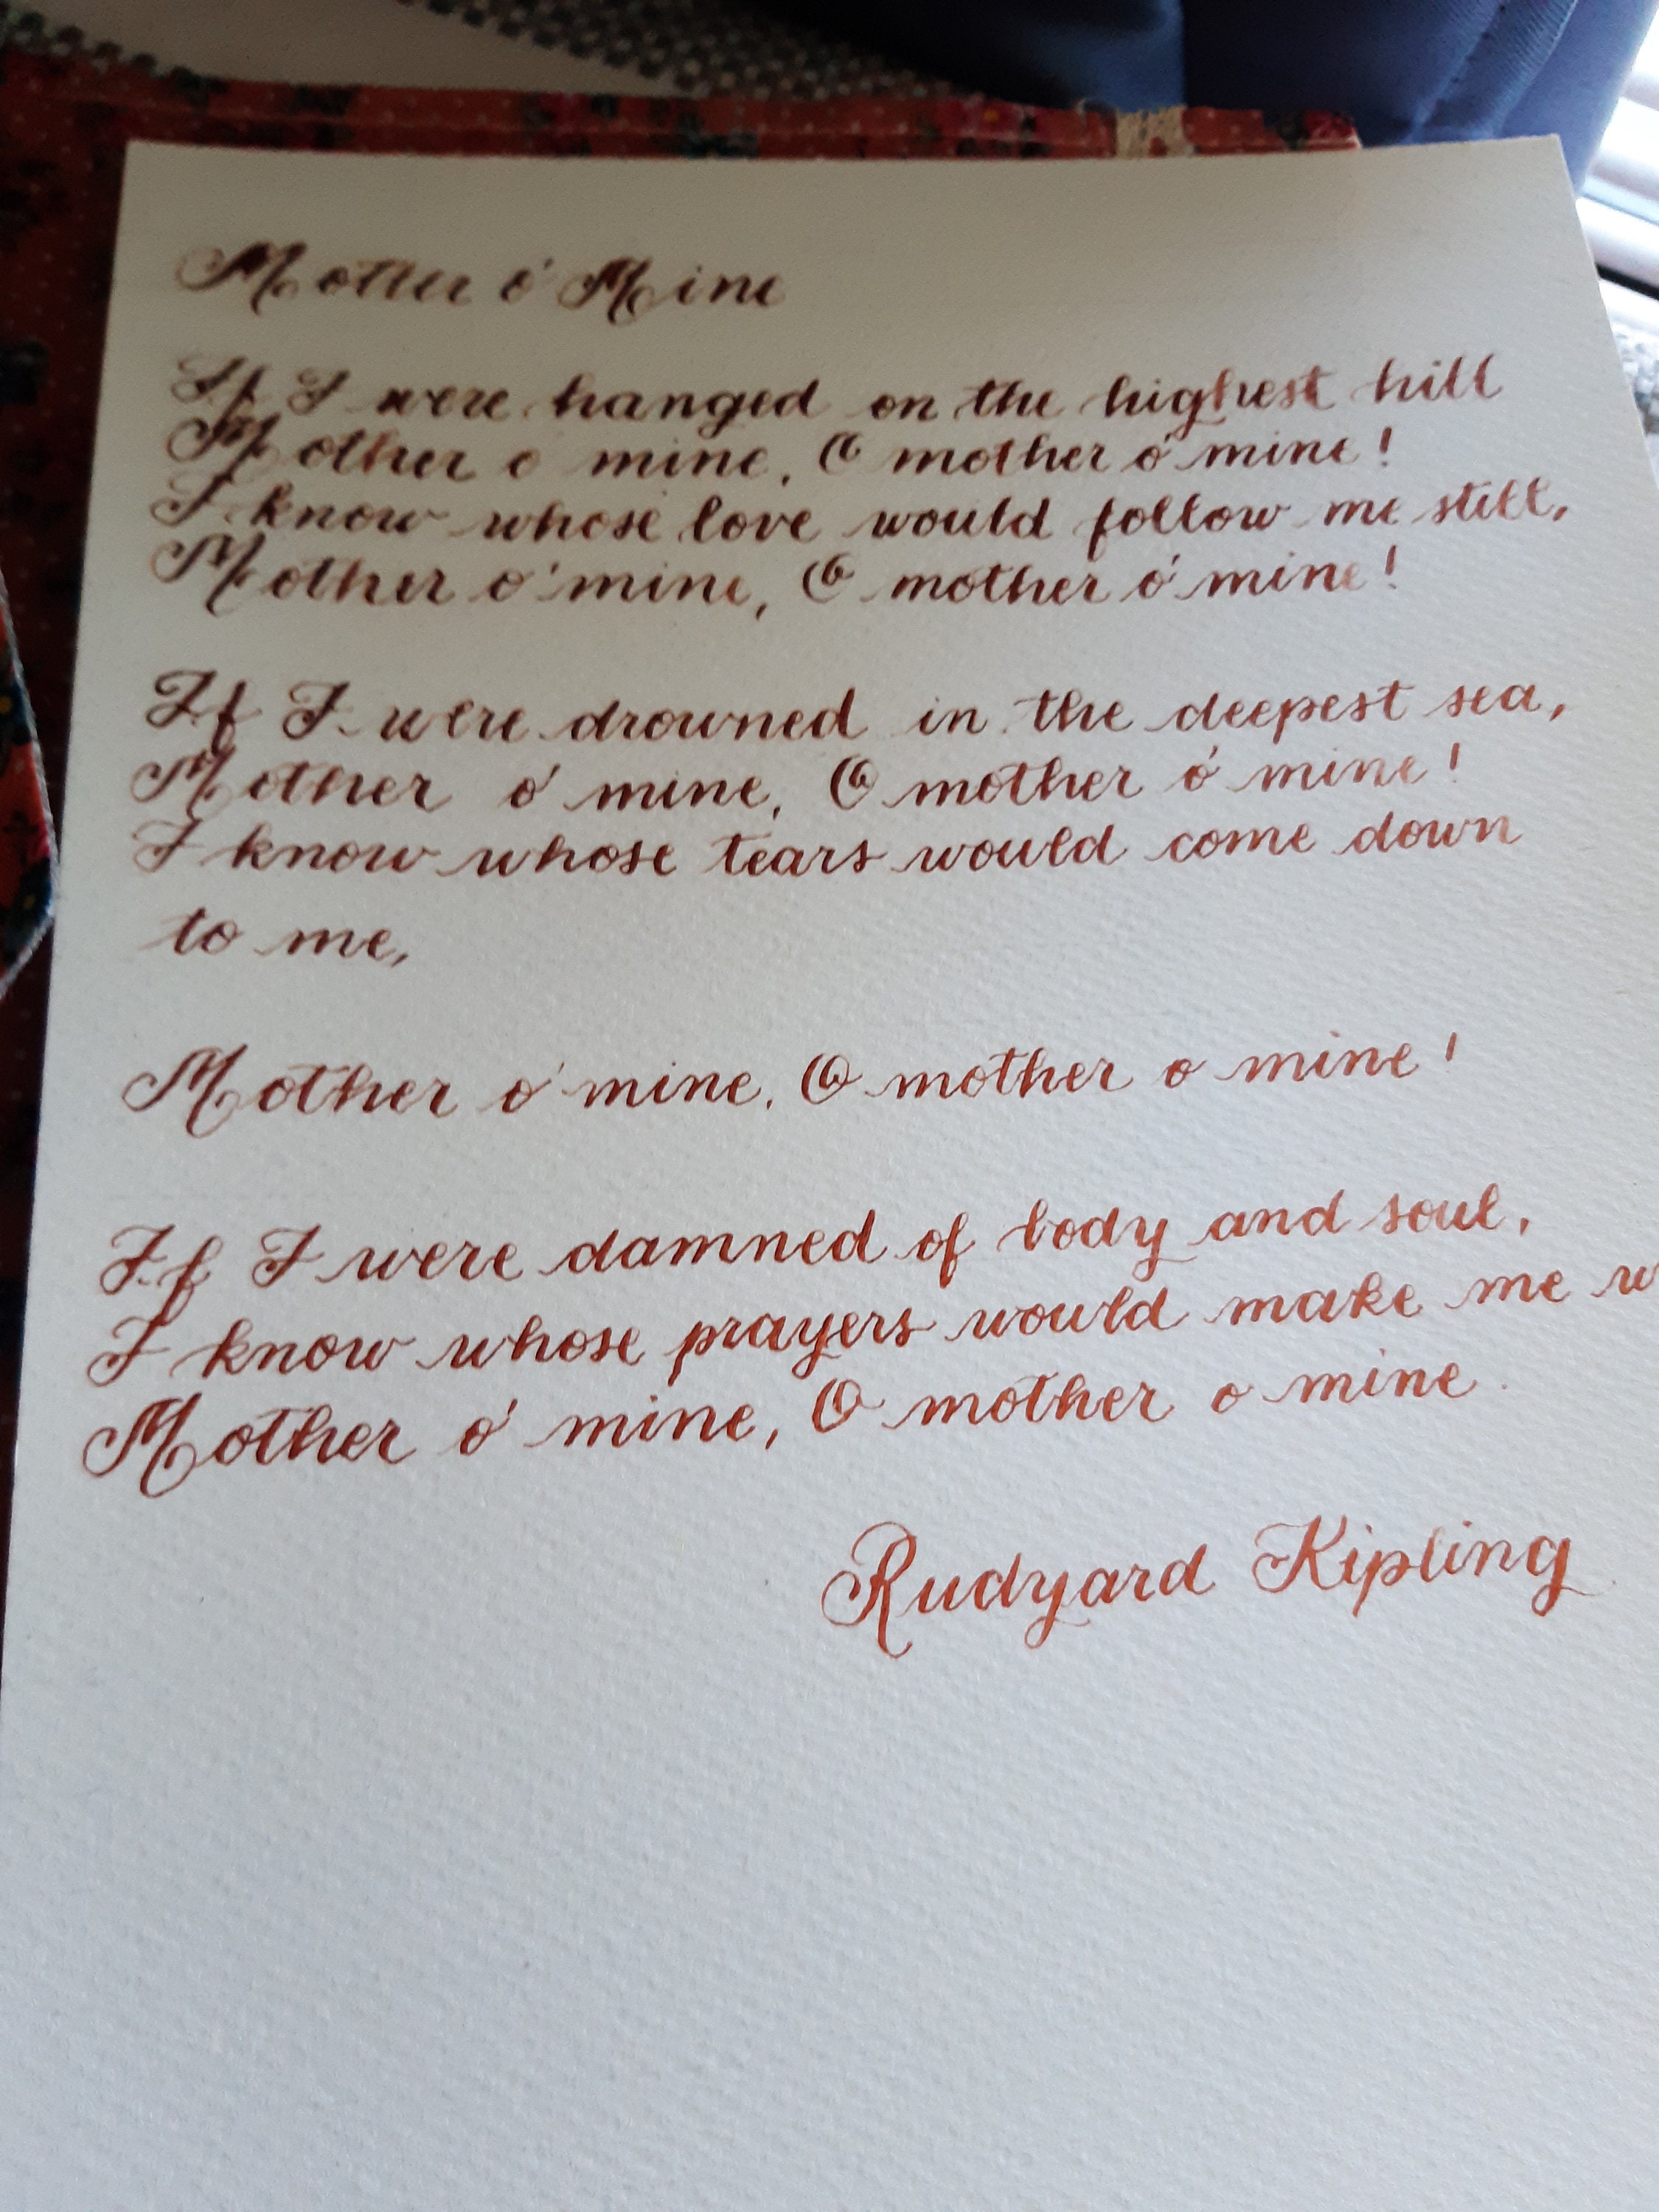 Mother o' Mine
If I were hanged on the highest hill
Mother o mine, O mother o' mine!
I know whose love would follow me still,
Mother o' mine, O mother o' mine!
If I were drowned in the deepest sea,
Mother o' mine, O mother o' mine!
I know whose tears would come down
to me,
Mother o' mine, O mother o mine!
If I were damned of body and soul,
I know whose prayers would make me w
Mother o' mine, O mother o mine.
Rudyard Kipling